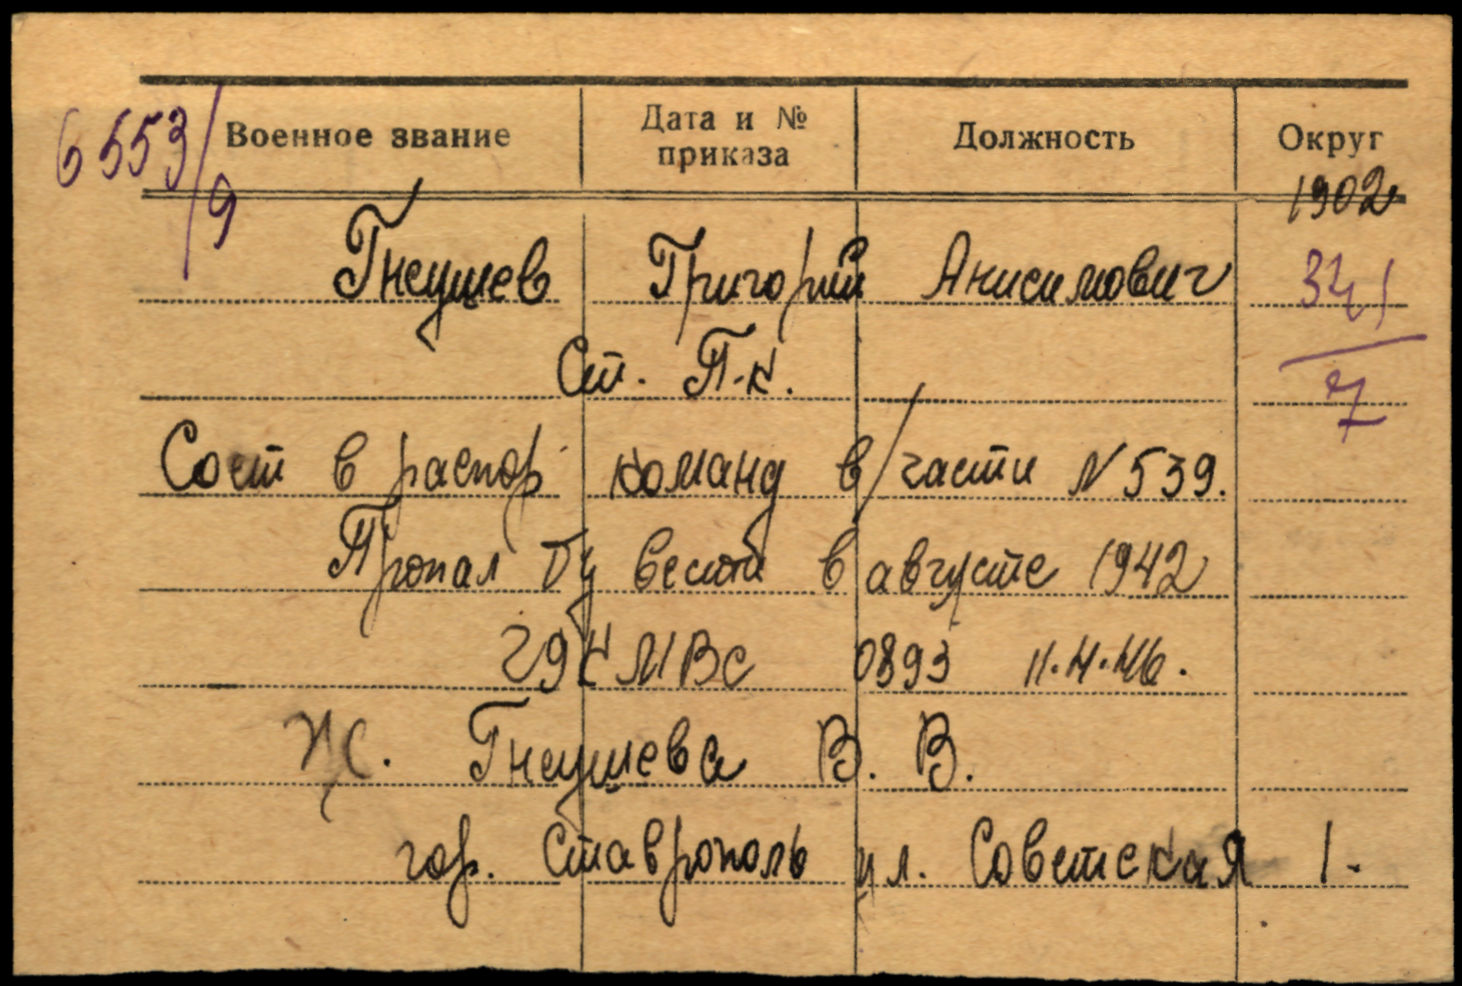 6553/9
Военное звание Дата и № приказа Должность Округ
1902
Гнеушев Григорий Анисимович
341/7
Ст. П-к.
Сост в распор команд в/части №539.
Пропал б/ вести в августе 1942
ГУК МВС 0893 11.4.46.
Ж. Гнеушева В. В.
гор. Ставрополь ул. Советская 1.